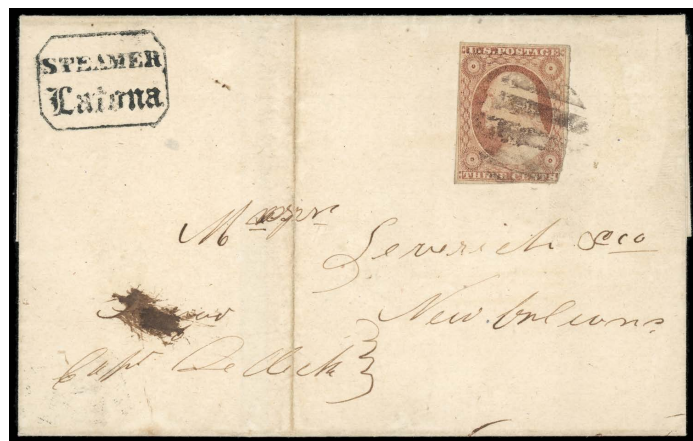 STEAMER
Latona
U.S. POSTAGE
THREE CENTS
Leverich & co
New Orleans
Capt